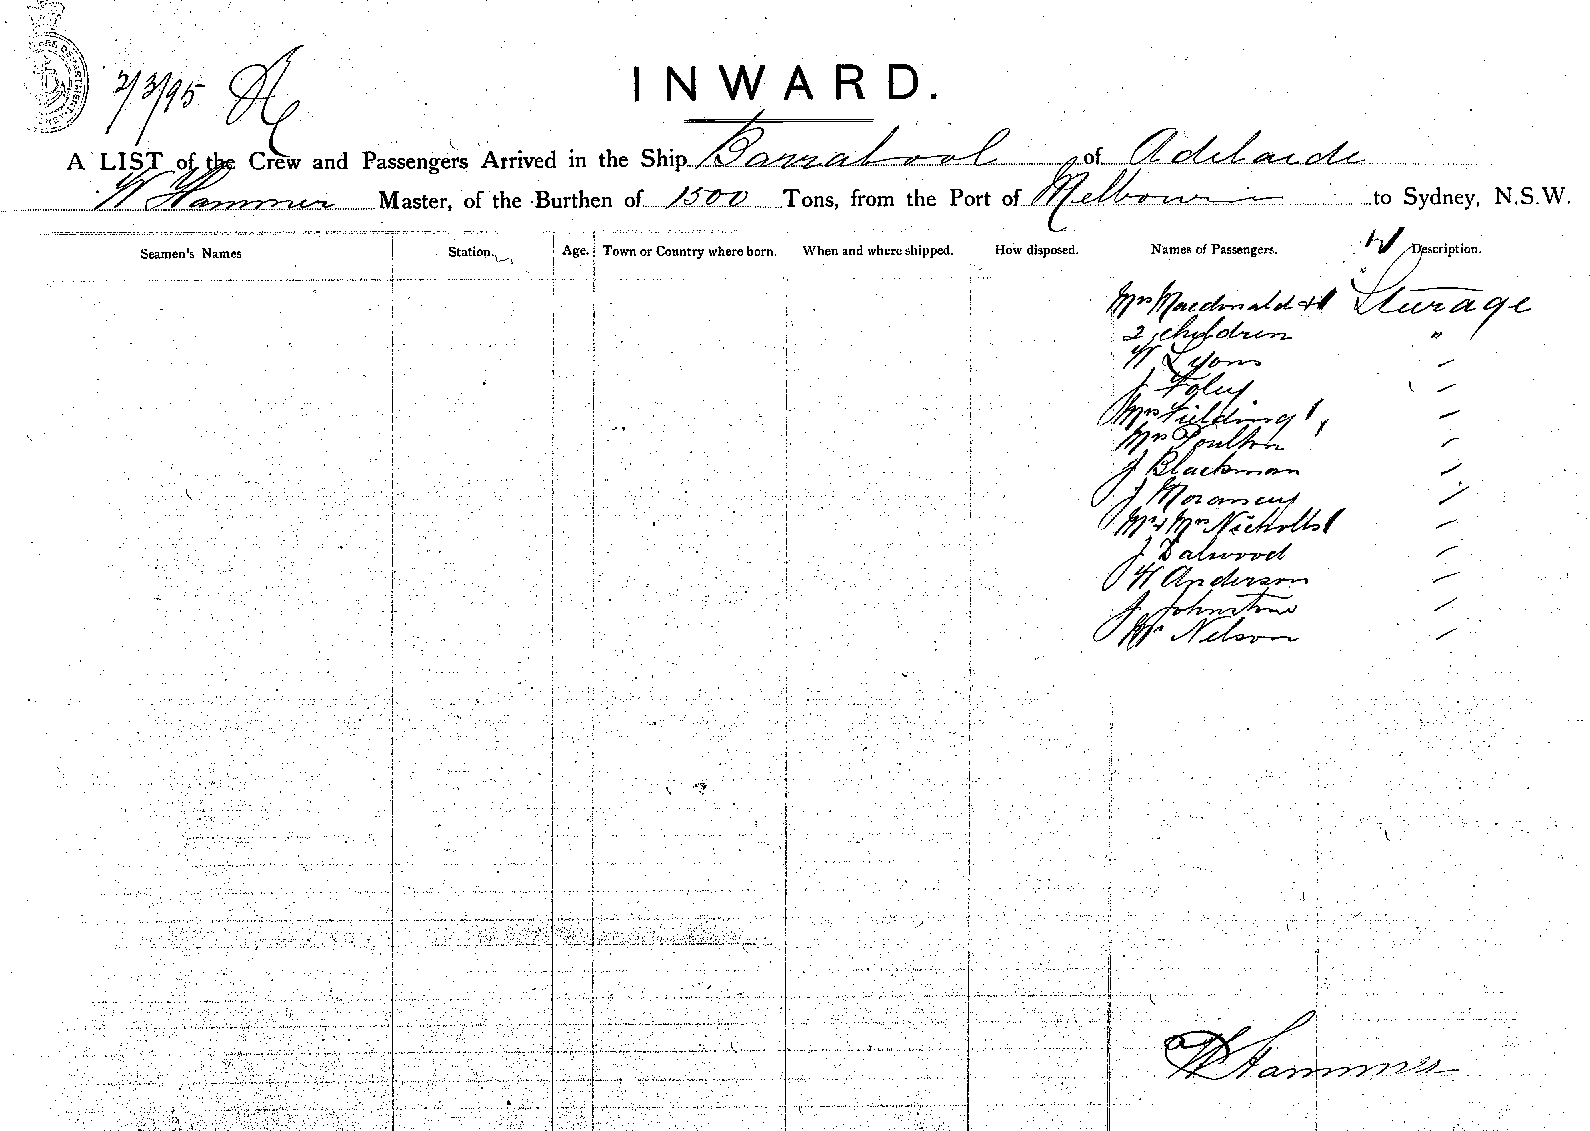 2/3/95
INWARD.
A LIST of the Crew and Passengers Arrived in the Ship Barrabool of Adelaide
W Hammer Master, of the Burthen of 1500 Tons, from the Port of Melbourne to Sydney, N.S.W.
Seamen's Names Station. Age. Town or Country where born. When and where shipped. How disposed. Names of Passengers. Description.
Mrs Macdonald & Sturage
2 children "
W Lyons "
J Foley "
Mrs Fielding "
Mrs Poulton "
J Blackman "
J Morancy "
Mr & Mrs Nicholls "
J Dalwood "
W Anderson "
J Johnstone "
Mr Nelson "
W Hammer